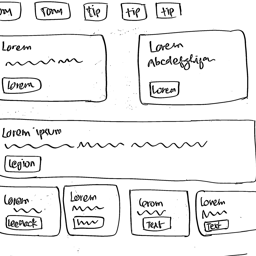 Form tip tip tip
Lorem
Lorem
Lorem
Abcdefghijan
Lorem
Lorem ipsum
legion
Lorem Lorem Lorem Lorem
Text Text